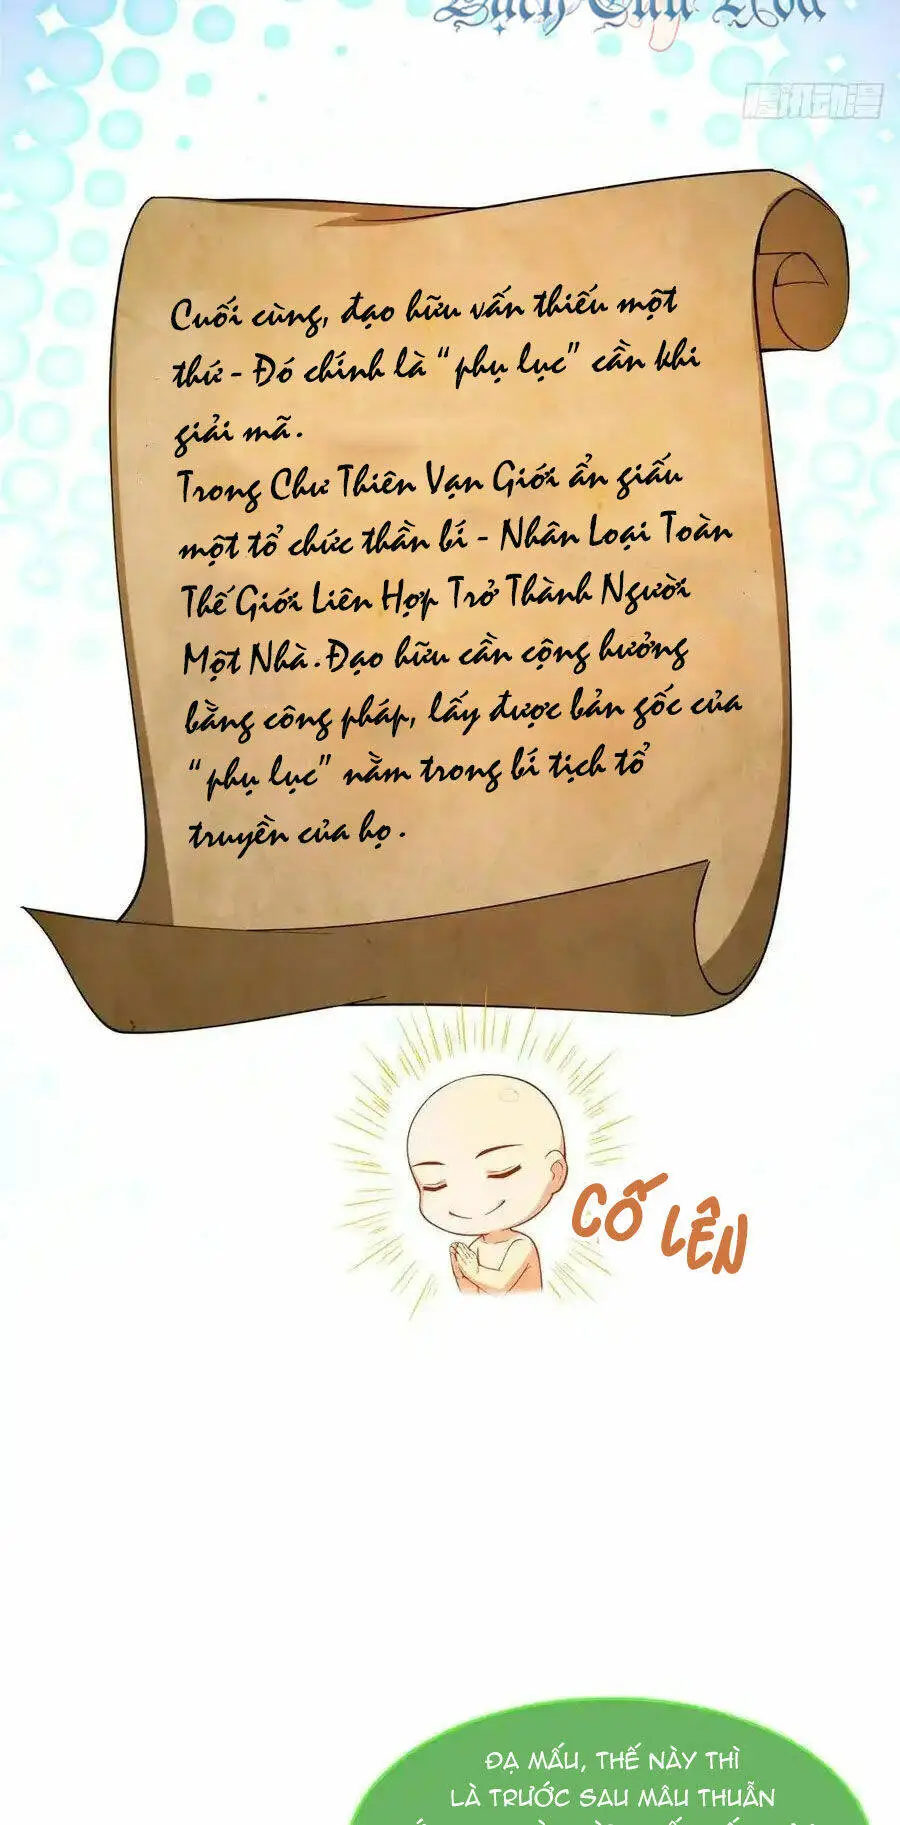 Bạch Cửu Hoa
腾讯动漫
Cuối cùng, đạo hữu vẫn thiếu một
thứ - Đó chính là “phụ lục” cần khi
giải mã.
Trong Chư Thiên Vạn Giới ẩn giấu
một tổ chức thần bí - Nhân Loại Toàn
Thế Giới Liên Hợp Trở Thành Người
Một Nhà. Đạo hữu cần cộng hưởng
bằng công pháp, lấy được bản gốc của
“phụ lục” nằm trong bí tịch tổ
truyền của họ.
CỐ LÊN
ĐẠ MẤU, THẾ NÀY THÌ
LÀ TRƯỚC SAU MÂU THUẪN